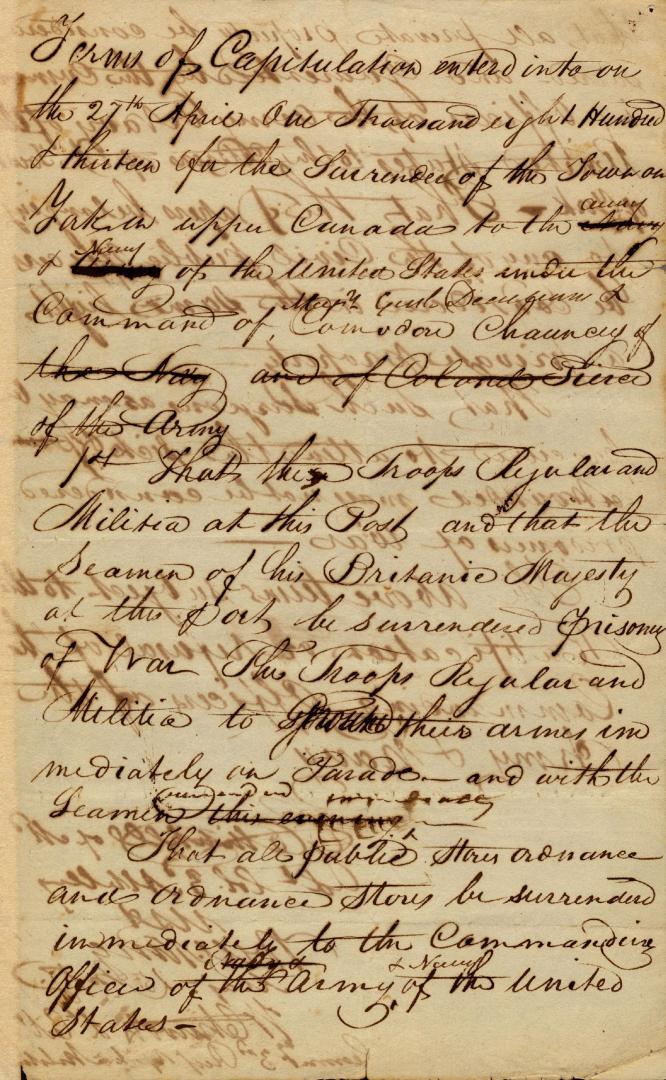 Terms of Capitulation enterd into on
the 27th April One Thousand eight Hundred
& thirteen for the Surrender of the Town of
York in upper Canada to the army
& Navy of the United States under the
Majr Genl Dearborn &
Command of Comodore Chauncey of
the Navy and of Colonel Pierce
of the Army
1st That the Troops Regular and
Militia at this Post and that the
Seamen of his Britanic Majesty
at this Post be surrendered prisoners
of War The Troops Regular and
Militia to ground their armes im
mediately on Parade — and with the
Seamen this evening
That all public stores ordnance
and ordnance stores be surrenderd
immediately to the Commanding
& Navy
Officer of the Army of the United
States —